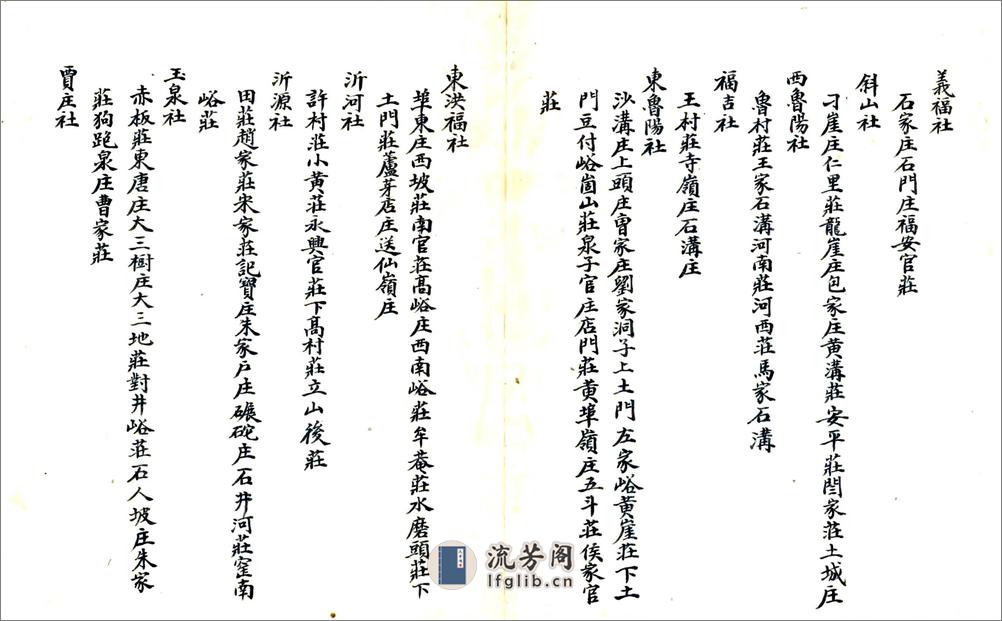 義福社
石家庄石門庄福安官莊
斜山社
刁崖庄仁里莊龍崖庄包家庄黄溝莊安平莊閆家莊土城庄
西魯陽社
魯村莊王家石溝河南莊河西莊馬家石溝
福吉社
王村莊寺嶺庄石溝庄
東魯陽社
沙溝庄上頭庄曺家庄劉家洞子上土門左家峪黄崖莊下土
門豆付峪崮山莊泉子官庄店門莊黄埠嶺庄五斗莊侯家官
莊
東洪福社
埠東庄西坡莊南官莊髙峪庄西南峪莊牟菴莊水磨頭莊下
土門莊蘆芽店庄送仙嶺庄
沂河社
許村莊小黄莊永興官莊下髙村莊立山後莊
沂源社
田莊趙家莊宋家莊記寶庄朱家戶庄碾砣庄石井河莊窐南
峪莊
玉泉社
赤板莊東唐庄大三樹庄大三地莊對井峪莊石人坡庄朱家
莊狗跑泉庄曹家莊
賈庄社
流芳阁
lfglib.cn